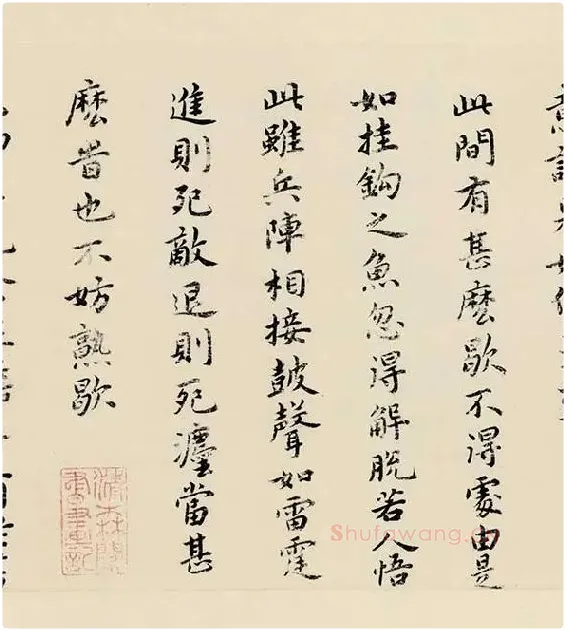 此間有甚麼歇不得處由是
如挂鉤之魚忽得解脫若人悟
此雖兵陣相接鼓聲如雷霆
進則死敵退則死灋當甚
麼旹也不妨熟歇
清森閣
書畫記
Shufawang.cn